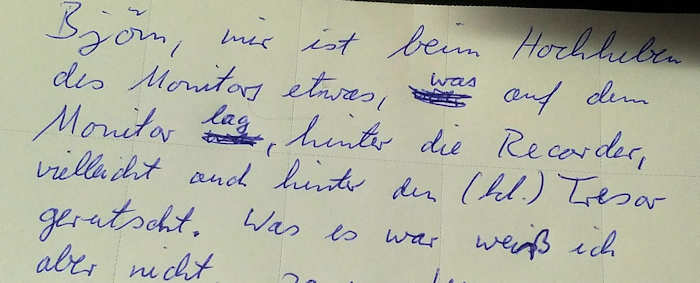 Björn, mir ist beim Hochheben
des Monitors etwas, was auf dem
Monitor lag, hinter die Recorder,
vielleicht auch hinter den (kl.) Tresor
gerutscht. Was es war weiß ich
aber nicht